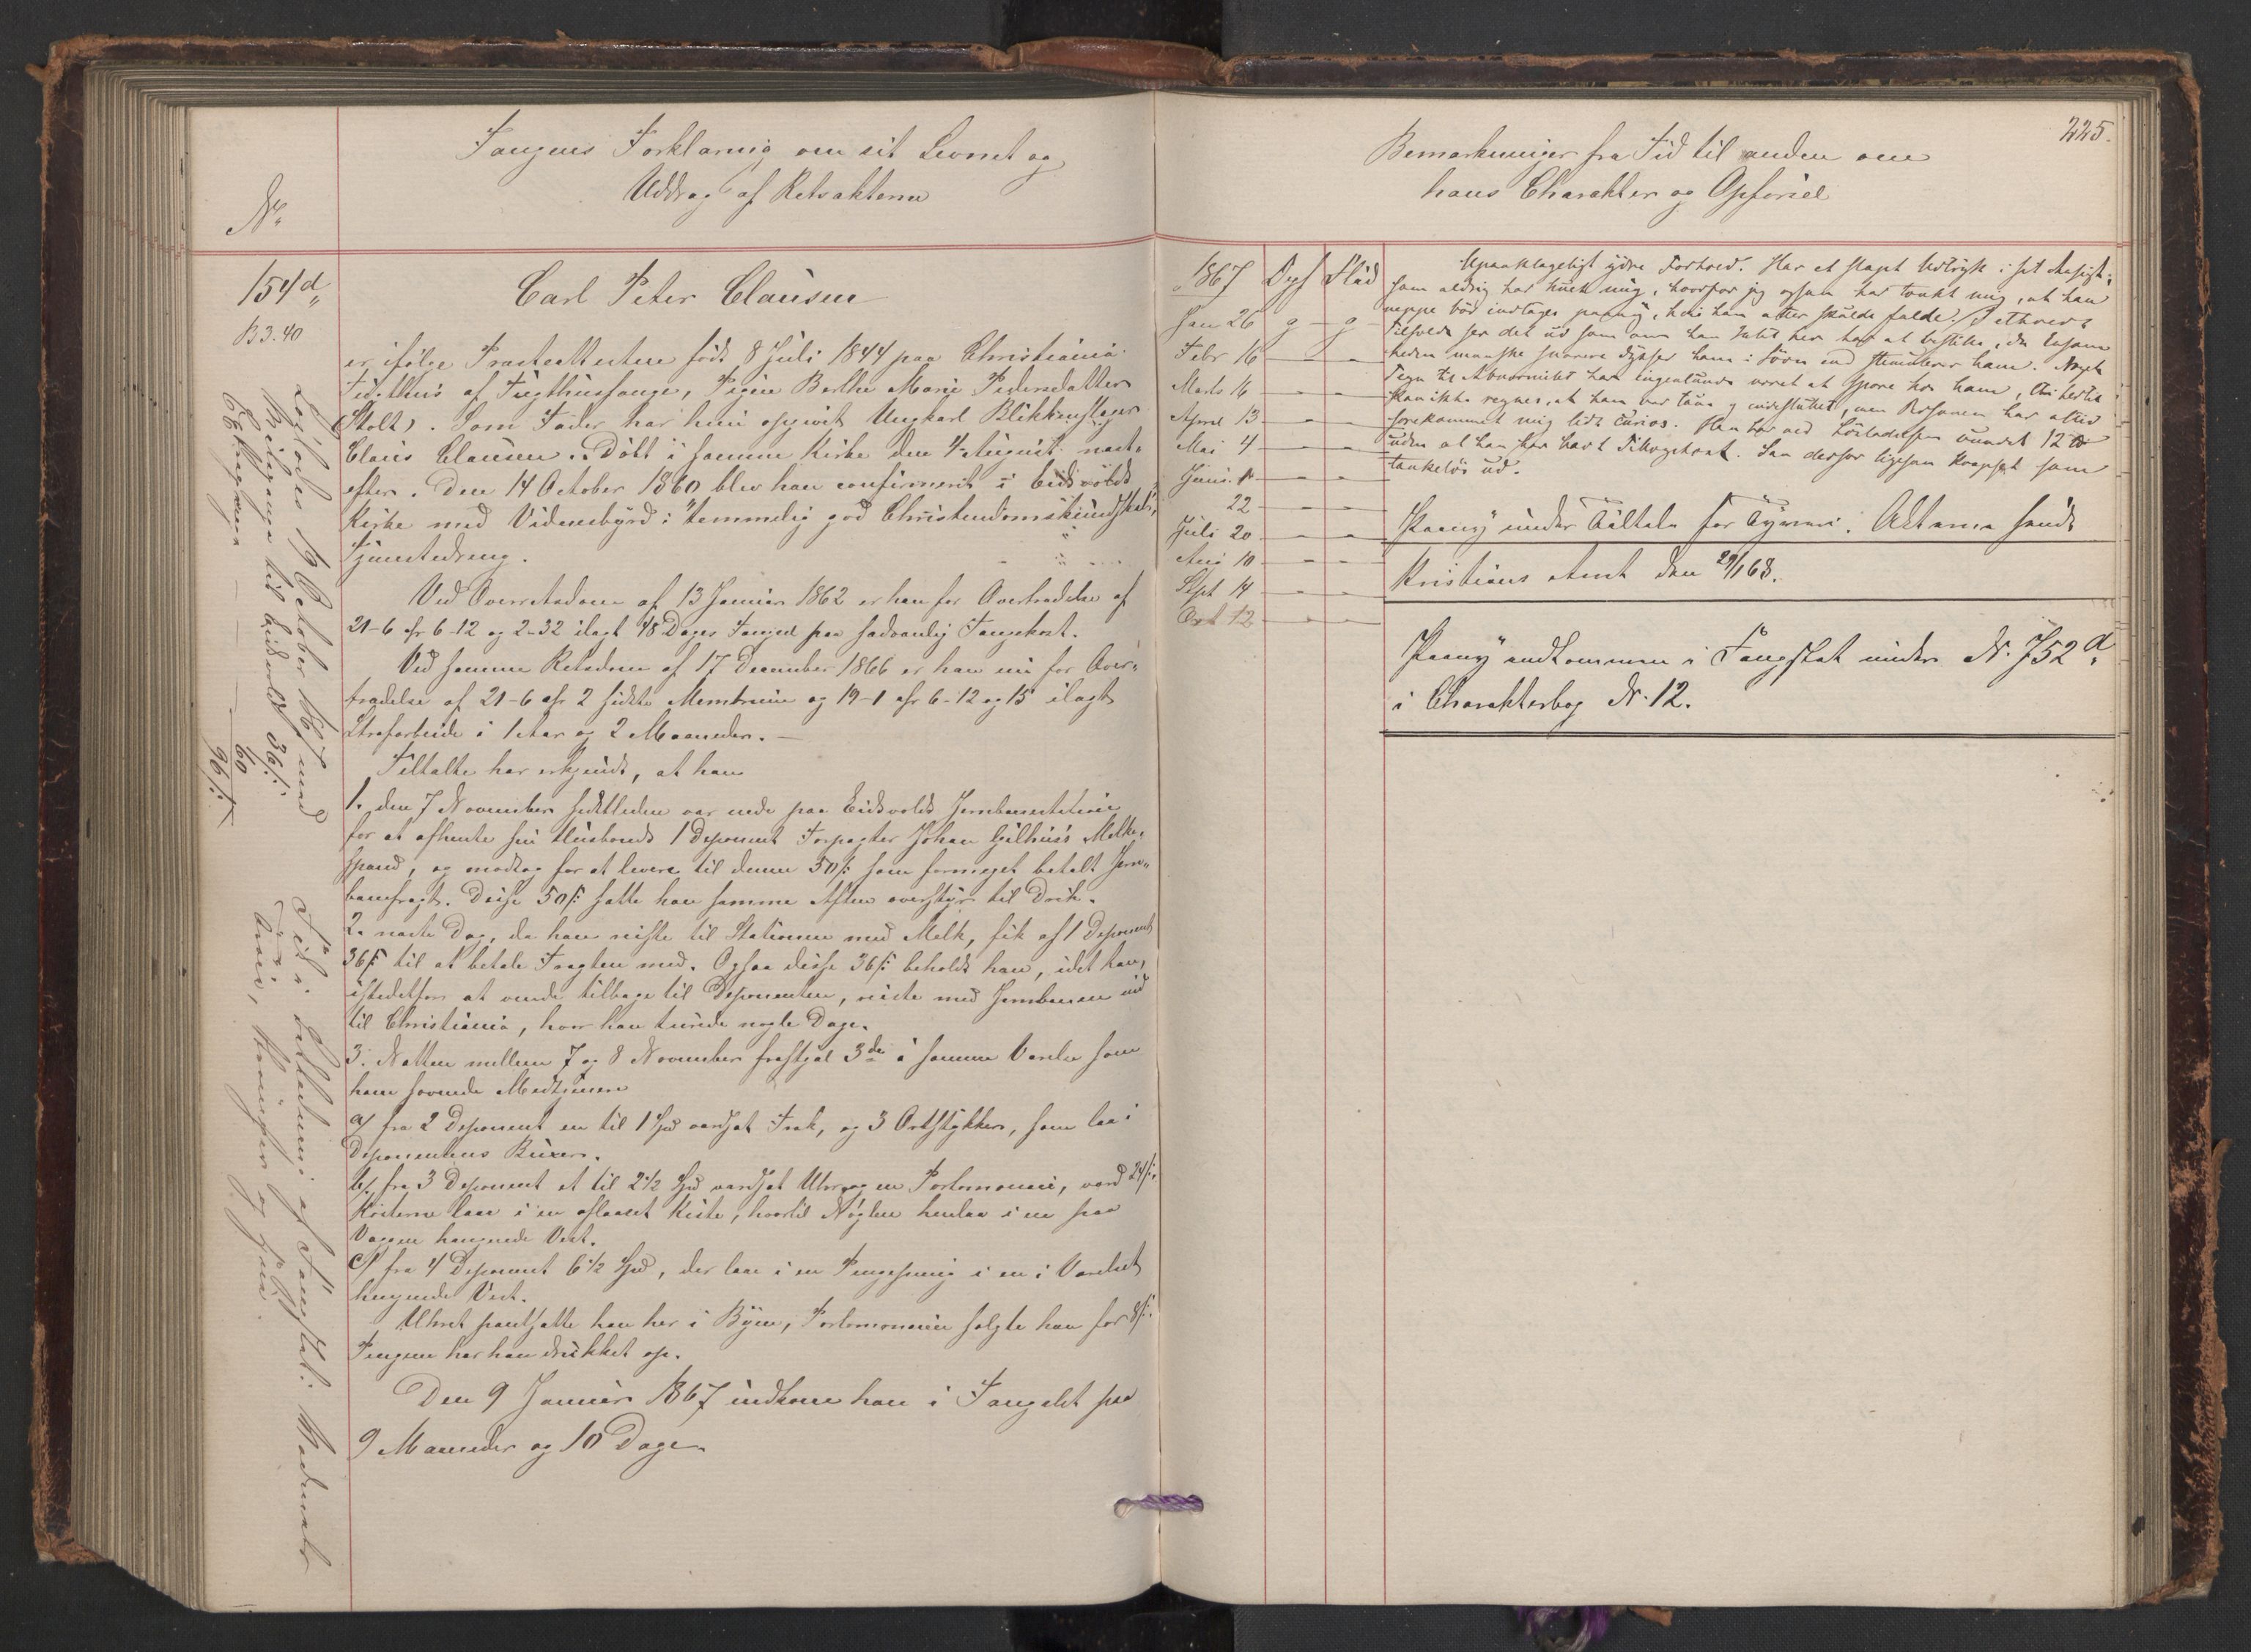 Fangens Forklaring om sit Levnet og
Uddrag af Retsakterne
No
154d
B 3. 40
Carl Peter Clausen
er ifølge Præsteattesten født 8 Juli 1844 paa Christiania
Tugthus af Tugthusfange, Pigen Berthe Marie Pedersdatter
(Stolt). Som Fader har hun opgivet Ungkarl Blikkenslager
Claus Clausen. Døbt i samme Kirke den 4 August næst-
efter. Den 14 October 1860 blev han confirmeret i Eidsvolds
Kirke med Vidnesbyrd: "temmelig god Christendomskundskab",
Tjenestedreng.
Ved Overretsdom af 13 Januar 1862 er han for Overtrædelse af
21-6 cfr 6-12 og 2-32 ilagt 18 Dages Fængsel paa sædvanlig Fangekost.
Ved samme Retsdom af 17 December 1866 er han nu for Over-
trædelse af 21-6 cfr 2 sidste Membrum og 19-1 cfr 6-12 og 15 ilagt
Strafarbeide i 1 Aar og 2 Maaneder.
Tiltalte har erkjendt, at han
1. den 7 November sidstleden var nede paa Eidsvolds Jernbanestation
for at afhente sin Husbonds 1 Deponent Forpagter Johan Gilhuus's Melke-
spand, og modtog for at levere til denne 50 s: som formeget betalt Jern-
banefragt. Disse 50 s: satte han samme Aften overstyr til Drik.
2. næste Dag, da han reiste til Stationen med Melk, fik af 1 Deponent
36 s: til at betale Fragten med. Ogsaa disse 36 s: beholdt han, idet han,
istedetfor at vende tilbage til Deponenten, reiste med Jernbanen ind
til Christiania, hvor han turede nogle Dage.
3. Natten mellem 7 og 8 November frastjal 3de i samme Værelse som
ham sovende Medtjenere
a/ fra 2 Deponent en til 1 Spd værdsat Frak, og 3 Ortstykker, som laa i
Deponentens Buxer.
b/ fra 3 Deponent et til 2 1/2 Spd værdsat Uhr og en Portemonnaie, værd 24 s:.
Kosterne laae i en aflaaset Kiste, hvortil Nøglen henlaa i en paa
Væggen hængende Vest.
c/ fra 4 Deponent 6 1/2 Spd, der laae i en Pengepung i en i Værelset
hængende Vest.
Uhret pantsatte han her i Byen, Portemonnaien solgte han for 8 s:.
Pengene har han drukket op.
Den 9 Januar 1867 indkom han i Fængslet paa
9 Maaneder og 10 Dage.
Løslodes 19 October 1867 med
Reisepenge til Eidsvold 36 s:
60
96 s:
Tid i Anledning af Fængslet: Moderat
225.
Bemærkninger fra Tid til anden om
hans Charakter og Opførsel
1867 Opf Flid
Jan 26 g g
Febr 16 — —
Marts 16 — —
April 13 — —
Mai 4 — —
Juni 1 — —
22 — —
Juli 20 — —
Aug 10 — —
Sept 14 — —
Oct 12 — —
Upaaklageligt ydre Forhold. Har et slapt Udtryk i sit Ansigt,
som aldrig har huet mig, hvorfor jeg ogsaa har tænkt mig, at han
neppe bør indtages paany, hvis han atter skulde falde. I ethvert
Tilfælde ser det ud som om han Intet her har at bestille, da Ensom-
heden maaske snarere dysser ham i Søvn end stimulerer ham. Noget
Tegn til Abnormitet har ingenlunde været at spore hos ham, thi hertil
kan ikke regnes, at han var taus og indesluttet, men Personen har altid
forekommet mig lidt curios. Han har ved Løsladelsen vundet 12 ℔
uden at han har havt Tilkogetkost. Saa derfor ligesaa kraftigt som
tankeløs ud.
Paany under Tiltale for Tyveri. Akterne sendt
Kristians Amt den 29/1 68.
Paany indkommen i Fængslet under No. 752 d
i Charakterbog No. 12.